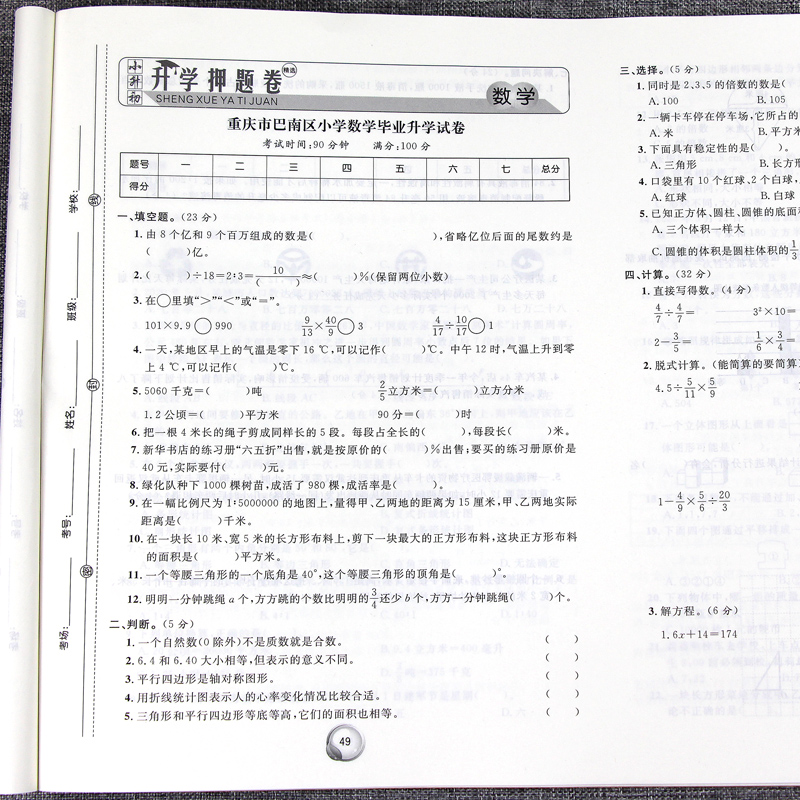 小升初
升学押题卷
精选
SHENG XUE YA TI JUAN
数学
重庆市巴南区小学数学毕业升学试卷
考试时间:90分钟 满分:100分
题号 一 二 三 四 五 六 七 总分
得分
学校:
班级:
姓名:
考号:
考场:
线
封
密
一、填空题。(23分)
1. 由8个亿和9个百万组成的数是( ),省略亿位后面的尾数约是
( )亿。
2. ( )÷18=2∶3=10/( )≈( )%(保留两位小数)
3. 在○里填“>”“<”或“=”。
101×9.9○990 9/13×40/9○3 4/17÷10/17○1
4. 一天,某地区早上的气温是零下16℃,可以记作( )℃。中午12时,气温上升到零
上4℃,可以记作( )℃。
5. 5060千克=( )吨 2/5立方米=( )立方分米
1.2公顷=( )平方米 90分=( )时
6. 把一根4米长的绳子剪成同样长的5段。每段占全长的( ),每段长( )米。
7. 新华书店的练习册“六五折”出售,就是按原价的( )%出售;要买的练习册原价是
40元,实际要付( )元。
8. 绿化队种下1000棵树苗,成活了980棵,成活率是( )。
9. 在一幅比例尺为1∶5000000的地图上,量得甲、乙两地的距离为15厘米,甲、乙两地实际
距离是( )千米。
10. 在一块长10米、宽5米的长方形布料上,剪下一块最大的正方形布料,这块正方形布料
的面积是( )平方米。
11. 一个等腰三角形的一个底角是40°,这个等腰三角形的顶角是( )°。
12. 明明一分钟跳绳a个,方方跳的个数比明明的3/4还少b个,方方一分钟跳绳( )个。
二、判断。(5分)
1. 一个自然数(0除外)不是质数就是合数。 ( )
2. 6.4和6.40大小相等,但表示的意义不同。 ( )
3. 平行四边形是轴对称图形。 ( )
4. 用折线统计图表示人的心率变化情况比较合适。 ( )
5. 三角形和平行四边形等底等高,它们的面积也相等。 ( )
49
三、选择。(5分)
1. 同时是2、3、5的倍数的数是(
A. 100 B. 105
2. 一辆卡车停在停车场,它所占的
A. 米 B. 平方米
3. 下面具有稳定性的是( )。
A. 三角形 B. 长方形
4. 口袋里有10个红球、2个白球,
A. 红球 B. 白球
5. 已知正方体、圆柱、圆锥的底面积
A. 三个体积一样大
C. 圆锥的体积是圆柱体积的1/3
四、计算。(32分)
1. 直接写得数。(4分)
4/7÷4/7= 3²×10=
2-3/5= 1/6×3/4=
2. 脱式计算。(能简算的要简算
4.5÷5/11×5/9
1-4/9×5/6÷20/3
3. 解方程。(6分)
1.6x+14=174